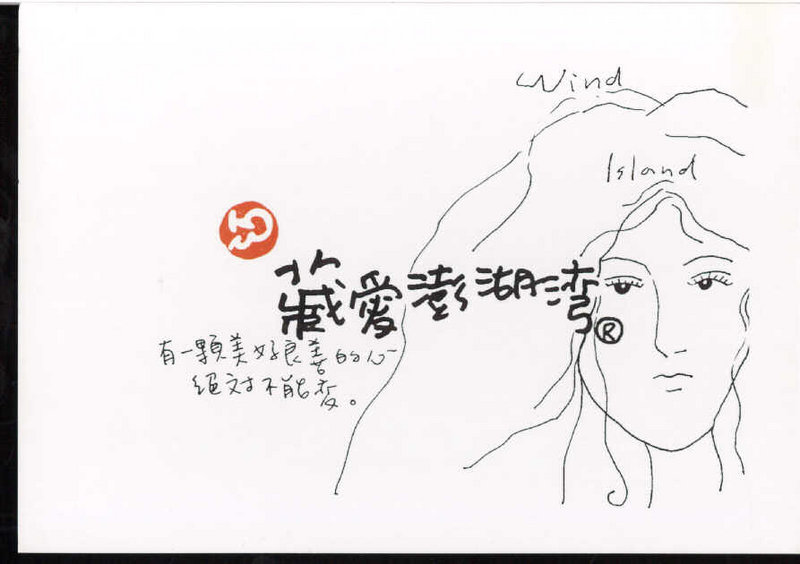 Wind
Island
藏愛澎湖湾®
有一顆美好良善的心
絕对不能変。